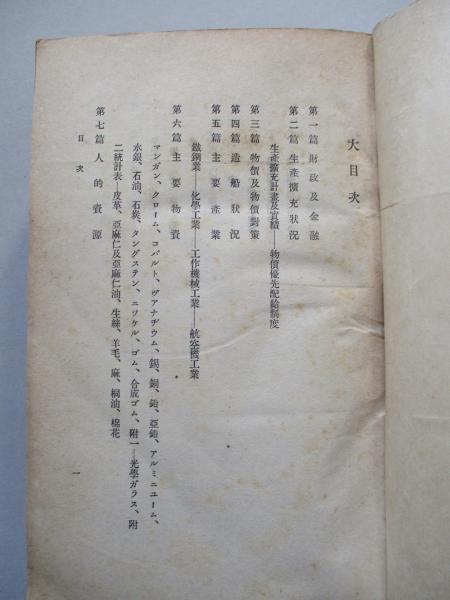 大目次
第一篇 財政及金融
第二篇 生産擴充狀況
生産擴充計畫及實績——物價優先配給制度
第三篇 物價及物價對策
第四篇 造船狀況
第五篇 主要産業
鐵鋼業——化學工業——工作機械工業——航空機工業
第六篇 主要物資
マンガン、クローム、コバルト、ヴアナヂウム、錫、銅、鉛、亞鉛、アルミニユーム、
水銀、石油、石炭、タングステン、ニツケル、ゴム、合成ゴム、附一—光學ガラス、附
二統計表—皮革、亞麻仁及亞麻仁油、生絲、羊毛、麻、桐油、棉花
第七篇 人的資源
目次
一